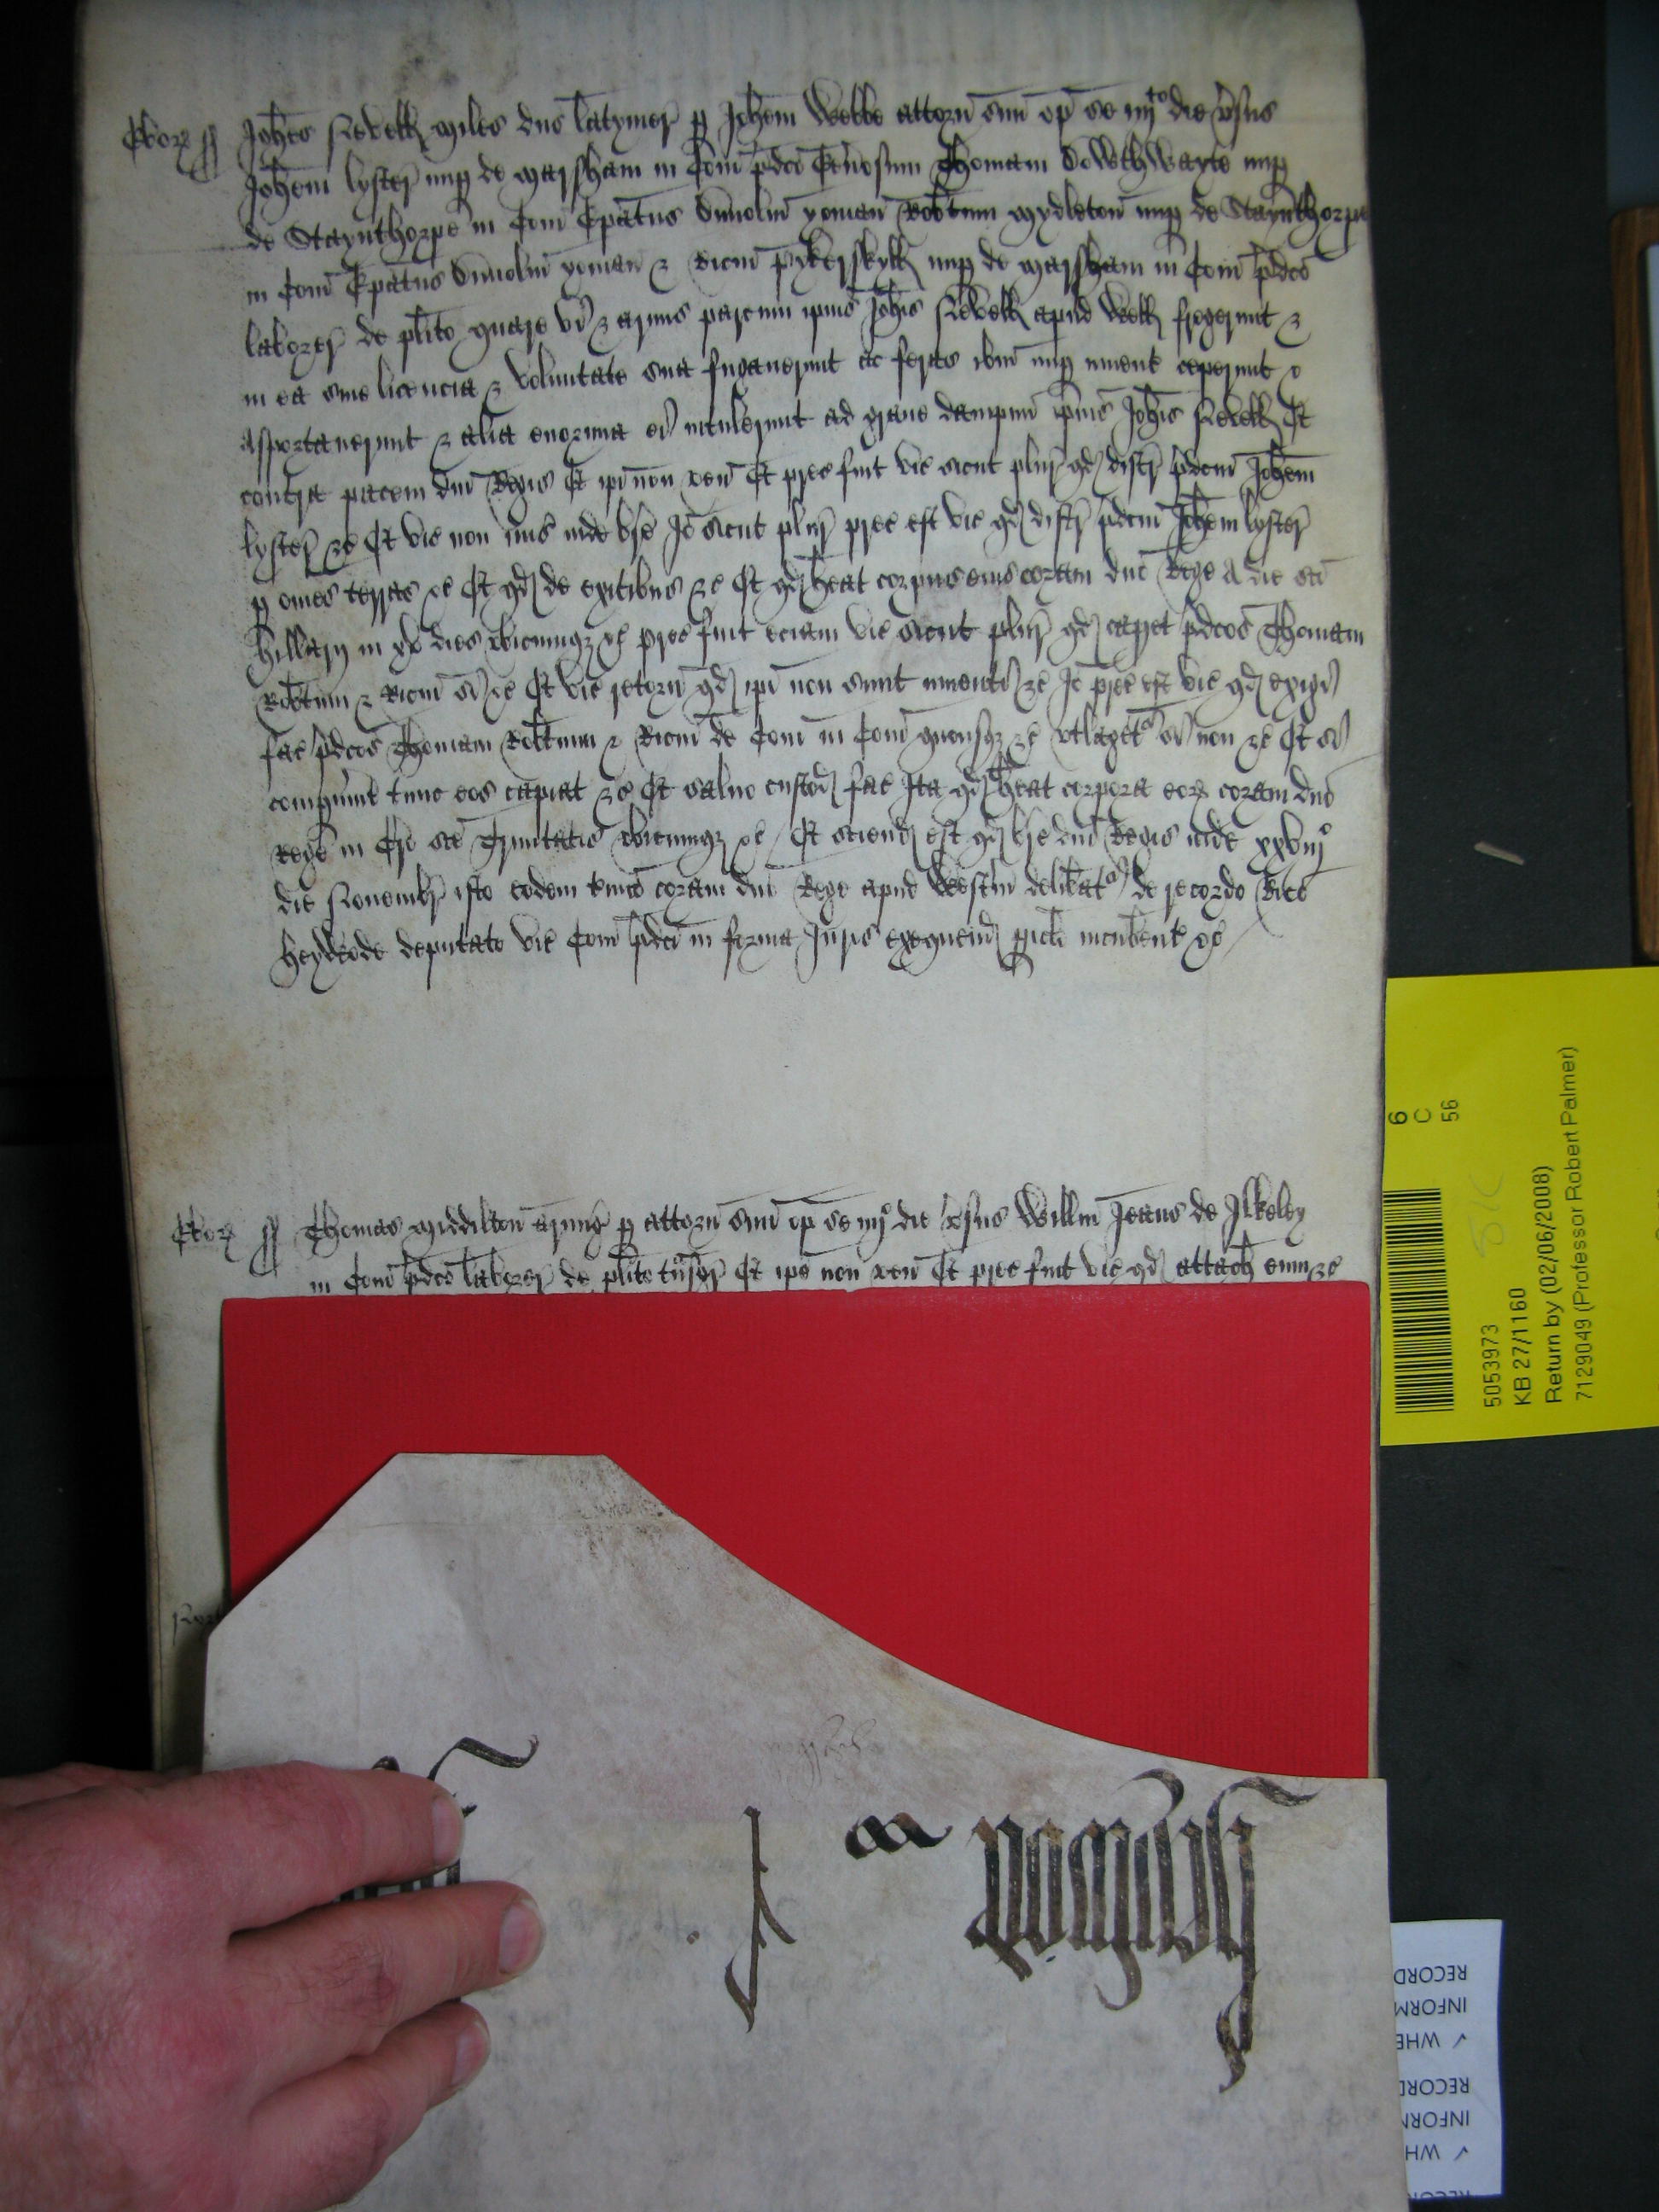 Ebor Joħes Nevell miles dns latymer p Joħem Webbe attorñ suũ op se iiijto die vsus
Joħem lyster nup de massham in Com pdco Tenosum Thomam Dowthwayte nup
de Staynthorpe in Com Epatus Dunolm yoman Robtum Mydleton nup de Staynthorpe
in Com Epatus Dunolm yoman & Ricm Pykerskyll nup de massham in Com pdco
laborer de plito quare vi & armis parcum ipius Joħis Nevell apud Well fregerunt &
in ea sine licencia & voluntate sua fugaverunt ac feras ibm nup invent ceperunt &
Asportaverunt & alia enormia ei intulerunt ad grave dampnu ipius Joħis Nevell Et
contra pacem dni Regis Et ipi non veñ Et prec fuit vic sicut plur qd distr pdcm Joħem
lyster &c Et vic non mis inde bre Jo sicut plur prec est vic qd distr pdcm Joħem lyster
p omes terras &c Et qd de exitibus &c Et qd ħeat corpus eius coram dno Rege A die sci
Hillarij in xv dies vbicumqz &c prec fuit eciam vic sicut plur qd caperet pdcos Thomam
Robtum & Ricm si &c Et vic retorñ qd ipi non sunt inventi &c Jo prec est vic qd exigi
fac pdcos Thomam Robtum & Ricm de Com in Com quousqz &c vtlagetr si non &c Et si
compuint tunc eos capiat &c Et salvo custod fac Ita qd ħeat corpora eor coram dno
Rege in Cro sce Trinitatis vbicumqz &c Et sciend est qd bre dni Regis inde xxviijo
die Novembr isto eodem tmio coram dno Rege apud Westm delibatr de recordo Rico
Heydode deputato vic Com pdci in forma Juris exequend piclo incubent &c
Ebor Thomas Middilton armig p attorñ suũ op se iiijo die vsus Willm Jeans de Ilkeley
in Com pdco laborer de plito tnsgr Et ipe non veñ Et prec fuit vic qd attach eum &c
6
C
56
5053973
KB 27/1160
Return by (02/06/2008)
7129049 (Professor Robert Palmer)
RECORD
INFORM
✓ WHE
RECORD
INFORM
✓ WH